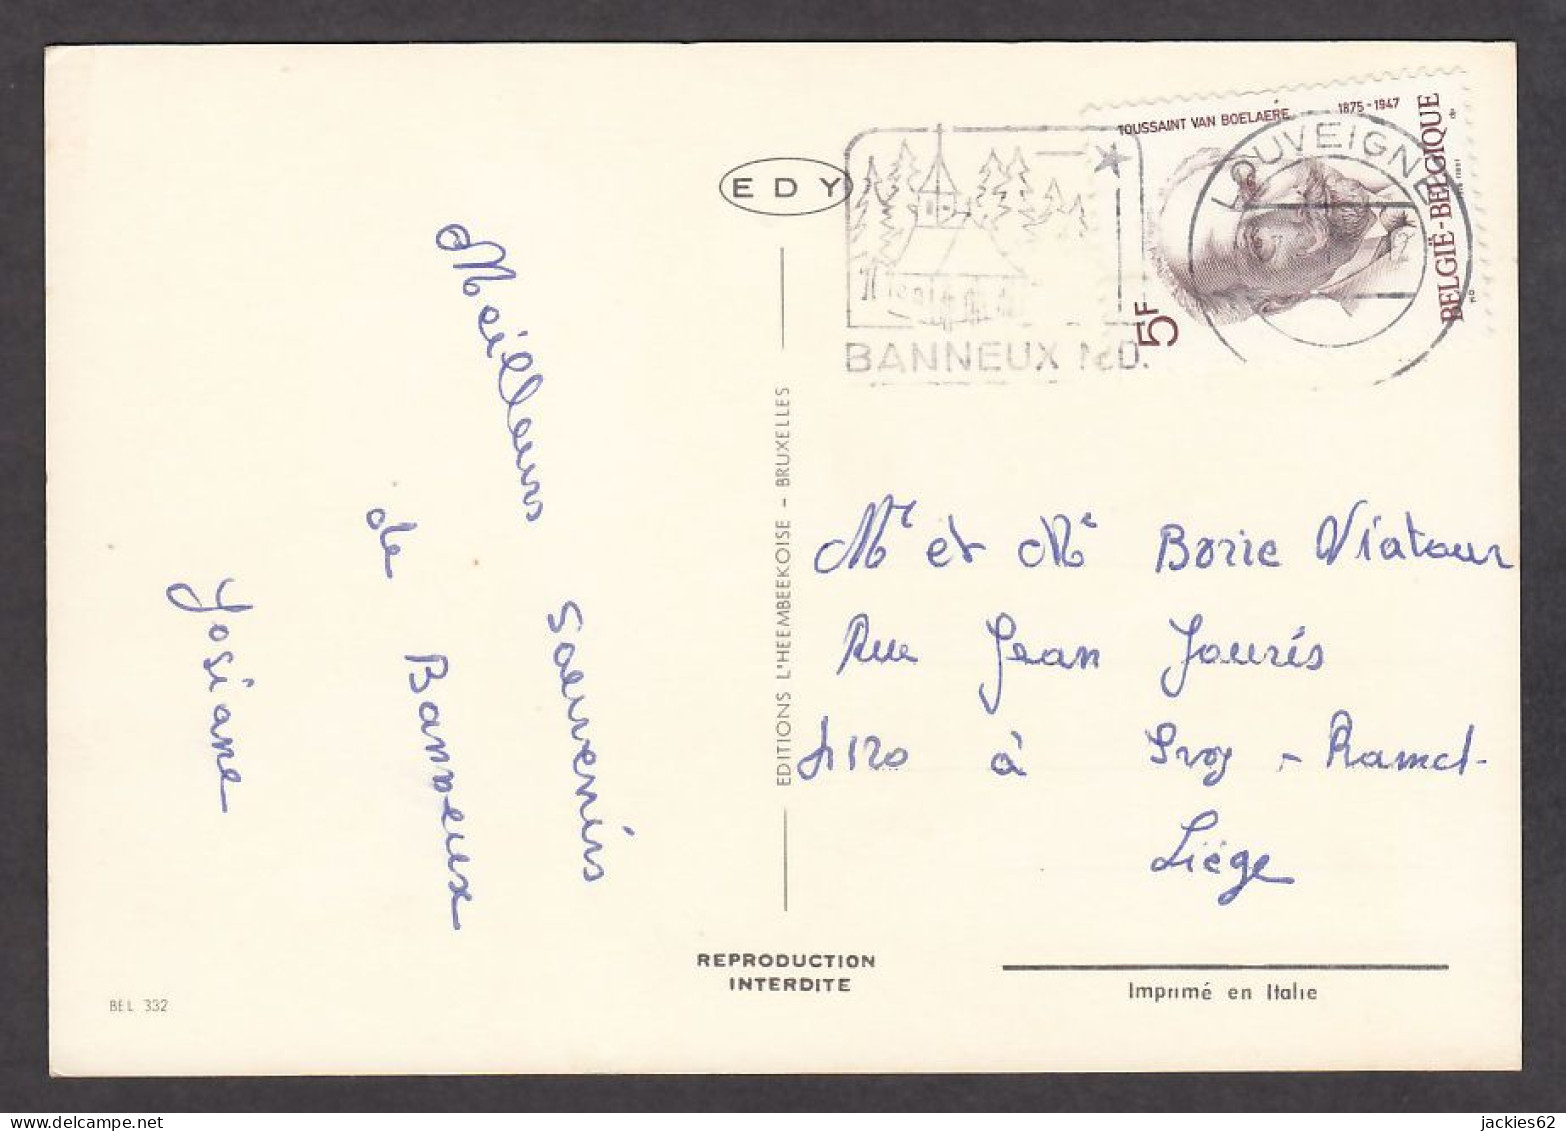 Meilleurs souvenirs
de Banneux
Josiane
EDY
EDITIONS L'HEEMBEEKOISE - BRUXELLES
REPRODUCTION
INTERDITE
BEL 332
BANNEUX N.D.
LOUVEIGNE
TOUSSAINT VAN BOELAERE 1875-1947
BELGIË-BELGIQUE
5F
Mr et Me Borie Viatour
Rue Jean Jaurés
4120 à Ivoz - Ramet-
Liége
Imprimé en Italie
jackies62